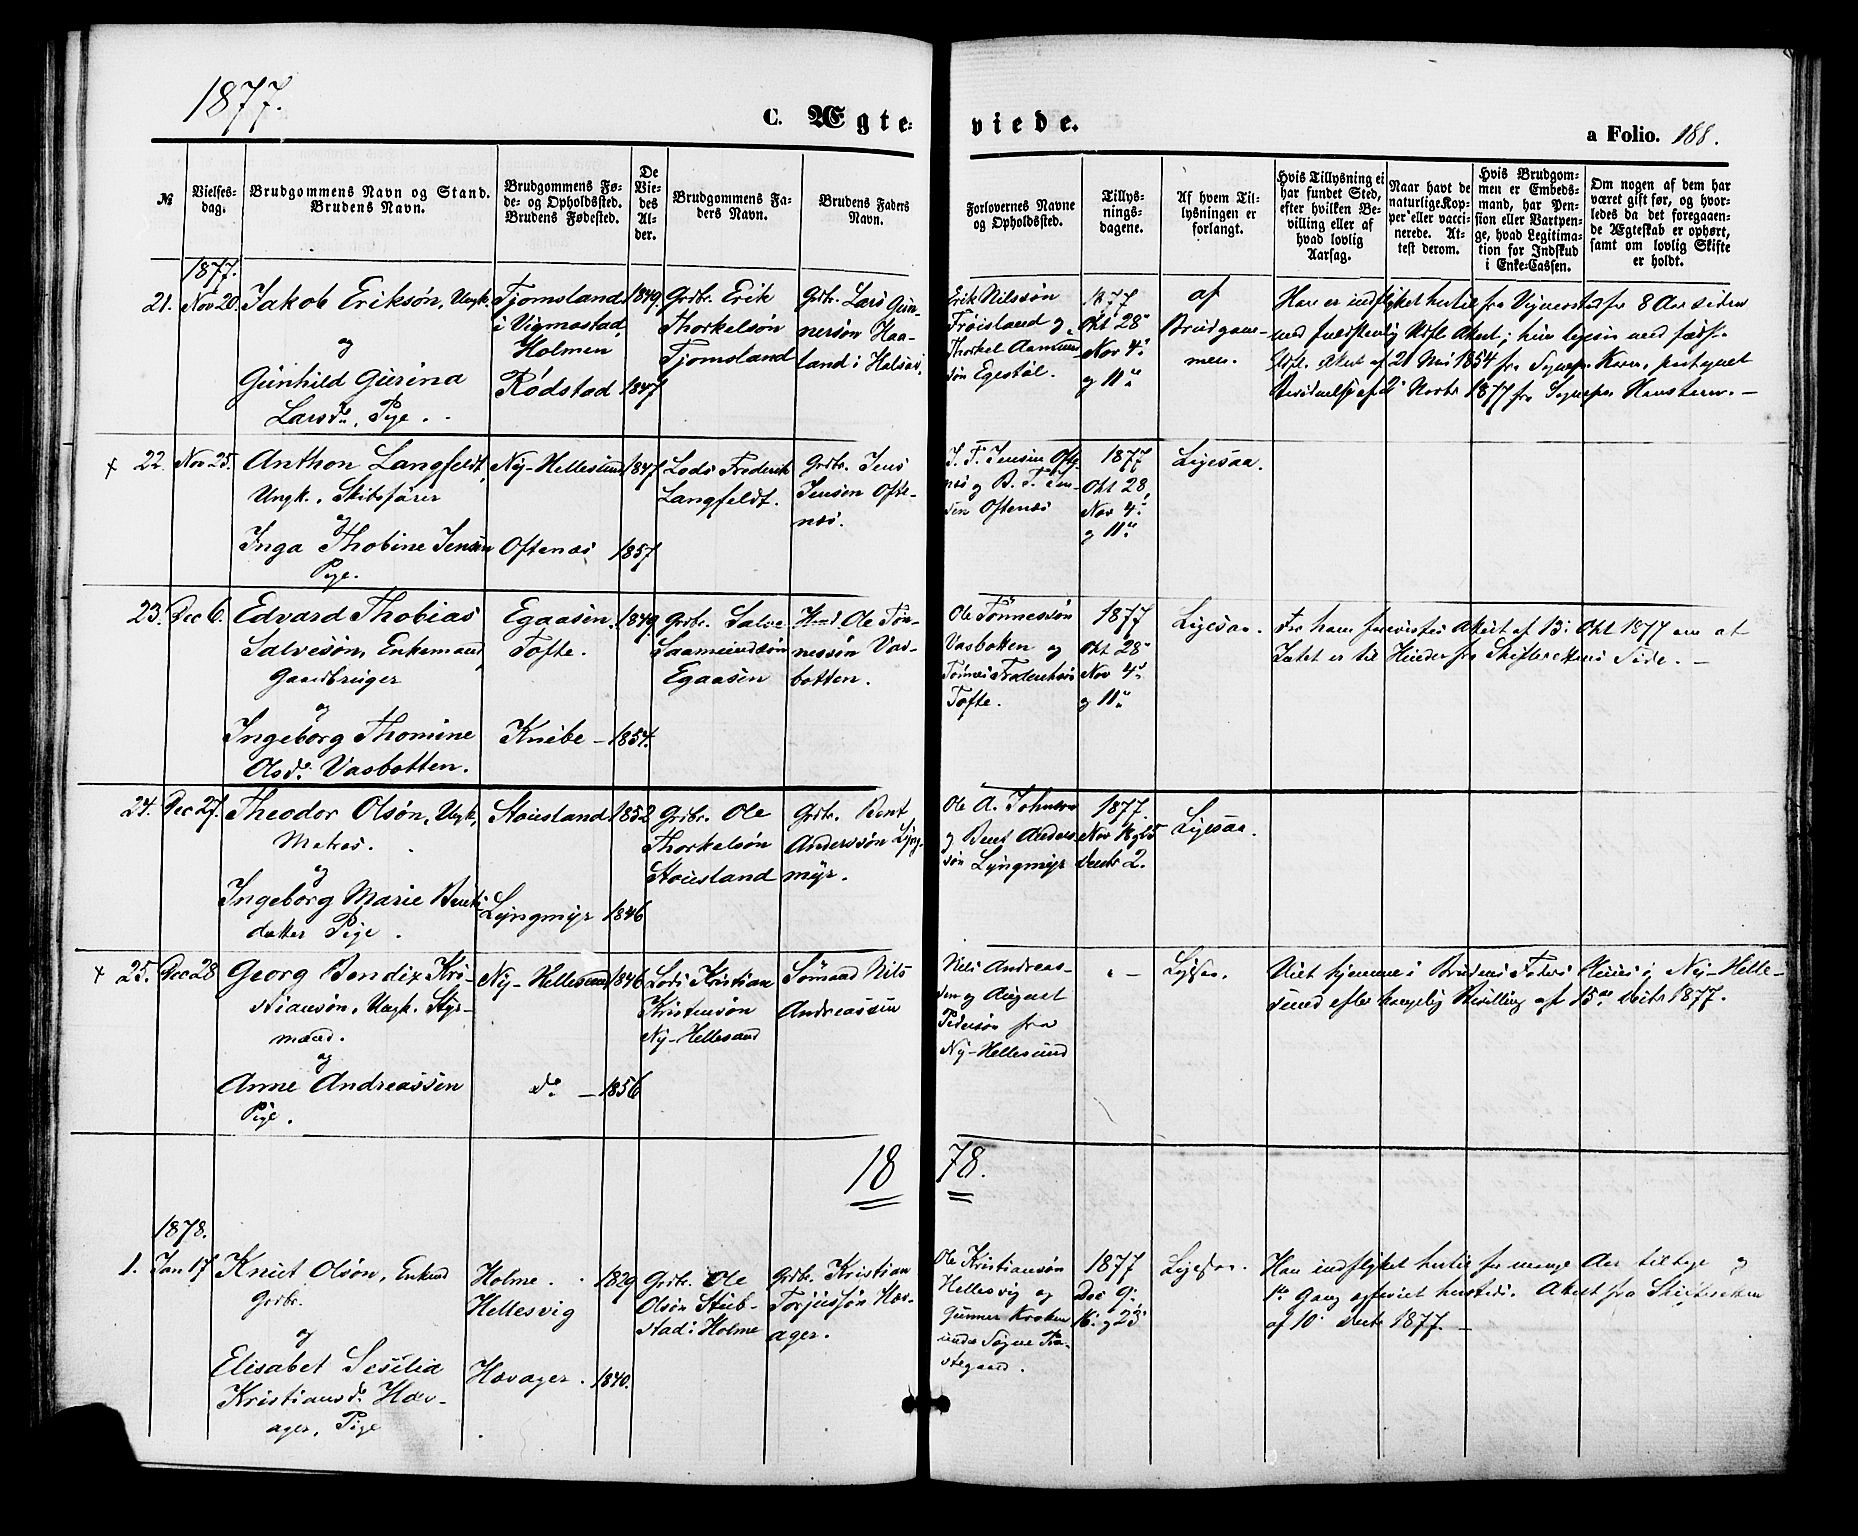 1877.
C. Ægte-
viede.
a Folio. 188.
№
Vielses-
dag.
Brudgommens Navn og Stand.
Brudens Navn.
Brudgommens Fø-
de- og Opholdsted.
Brudens Fødested.
De
Vie-
des
Al-
der.
Brudgommens Fa-
ders Navn.
Brudens Faders
Navn.
Forlovernes Navne
og Opholdssted.
Tillys-
nings-
dagene.
Af hvem Til-
lysningen er
forlangt.
Hvis Tillysning ei
har fundet Sted,
efter hvilken Be-
villing eller af
hvad lovlig
Aarsag.
Naar havt de
naturlige Kop-
per eller vacci-
nerede. At-
test derom.
Hvis Brudgom-
men er Embeds-
mand, har Pen-
sion eller Vartpen-
ge, hvad Legitima-
tion for Indskud
i Enke-Cassen.
Om nogen af dem har
været gift før, og hvor-
ledes da det foregaaen-
de Ægteskab er ophørt,
samt om lovlig Skifte
er holdt.
1877.
21. Nov 20.
Jakob Eriksøn, Ungk.
og
Gunhild Gurina
Larsdr, Pige.
Tjomsland
i Vigmostad,
Holmen
Rødstad
1849
1847
Grdbr. Erik
Thorkelsøn
Tjomsland
Grdbr. Lars Gun-
nersøn Haa-
land i Halsaa.
Erik Nilssøn
Frøisland og
Thorkel Aamund
søn Egestøl.
1877
Okt 28
Nov 4
og 11
af
Brudgom-
men.
Han er indflyttet hertil fra Vigmostad for 8 Aar siden
21 Mai 1854 fra
1877 fra
+ 22. Nov 25.
Anthon Langfeldt,
Ungk., Skibsfører
og
Inga Thobine Jensen
Pige.
Ny-Hellesund
Oftenæs
1847
1857
Lods Frederik
Langfeldt.
Grdbr. Jens
Jensen Ofte-
næs.
J. F. Jensen Ofte
næs og B. T. Jen-
sen Oftenæs
1877
Okt 28,
Nov 4
og 11
Ligesaa.
23. Dec 6.
Edvard Thobias
Salvesøn, Enkemand,
Gaardbruger
og
Ingeborg Thomine
Olsdr. Vasbotten.
Egaasen.
Tofte.
Knibe
1849
1854.
Grdbr. Salve
Saamundsøn
Egaasen
Ole Tøn-
nessøn Vas-
botten.
Ole Tønnessøn
Vasbotten og
Tønnes Frederiksøn
Tofte.
1877
Okt 28
Nov 4
og 11
Ligesaa.
For ham forevistes Attest af 13. Okt 1877 om at
Intet er til Hinder fra Skifterettens Side. —
24. Dec 27.
Theodor Olsøn, Ungk,
Matros.
og
Ingeborg Marie Bents
datter Pige.
Stousland
Lyngmyr
1852
1846
Grdbr. Ole
Thorkelsøn
Stousland
Grdbr. Bent
Anderssøn Lyng
myr.
Ole A. Johnsen
og Bent Anders
søn Lyngmyr
1877.
Nov 18 og 25
Decbr 2.
Ligesaa.
+ 25. Dec 28
Georg Bendix Kri-
stiansøn, Ungk. Styr-
mand.
og
Anne Andreassen
Pige.
Ny-Hellesund
do
1846
1856
Lods Kristian
Kristensøn
Ny-Hellesund
Sømand Nils
Andreassen
Nils Andreas-
sen og August
Pedersøn fra
Ny-Hellesund
Ligesaa.
Viet hjemme i Brudens Faders Huus i Ny-Helle-
sund efter kongelig Bevilling af 15de Decbr 1877.
18
78.
1878.
1. Jan 17
Knut Olsøn, Enkmd
Grdbr.
og
Elisabet Sesilia
Kristiansdr. Hæv-
ager, Pige
Holme.
Hellesvig
Hævager.
1829
1840.
Grdbr. Ole
Olsøn Stub-
stad i Holme
Grdbr. Kristian
Torjussøn Hæv-
ager.
Ole Kristiansøn
Hellesvig og
Gunner Kroken
under Søgne Præ-
stegaard.
1877
Dec 9.
16. og 23.
Ligesaa.
Han indflyttet hertil for mange Aar tilbage og
1ste Gang copuleret hersteds. Attest fra Skifteretten
af 10. Decbr 1877. —